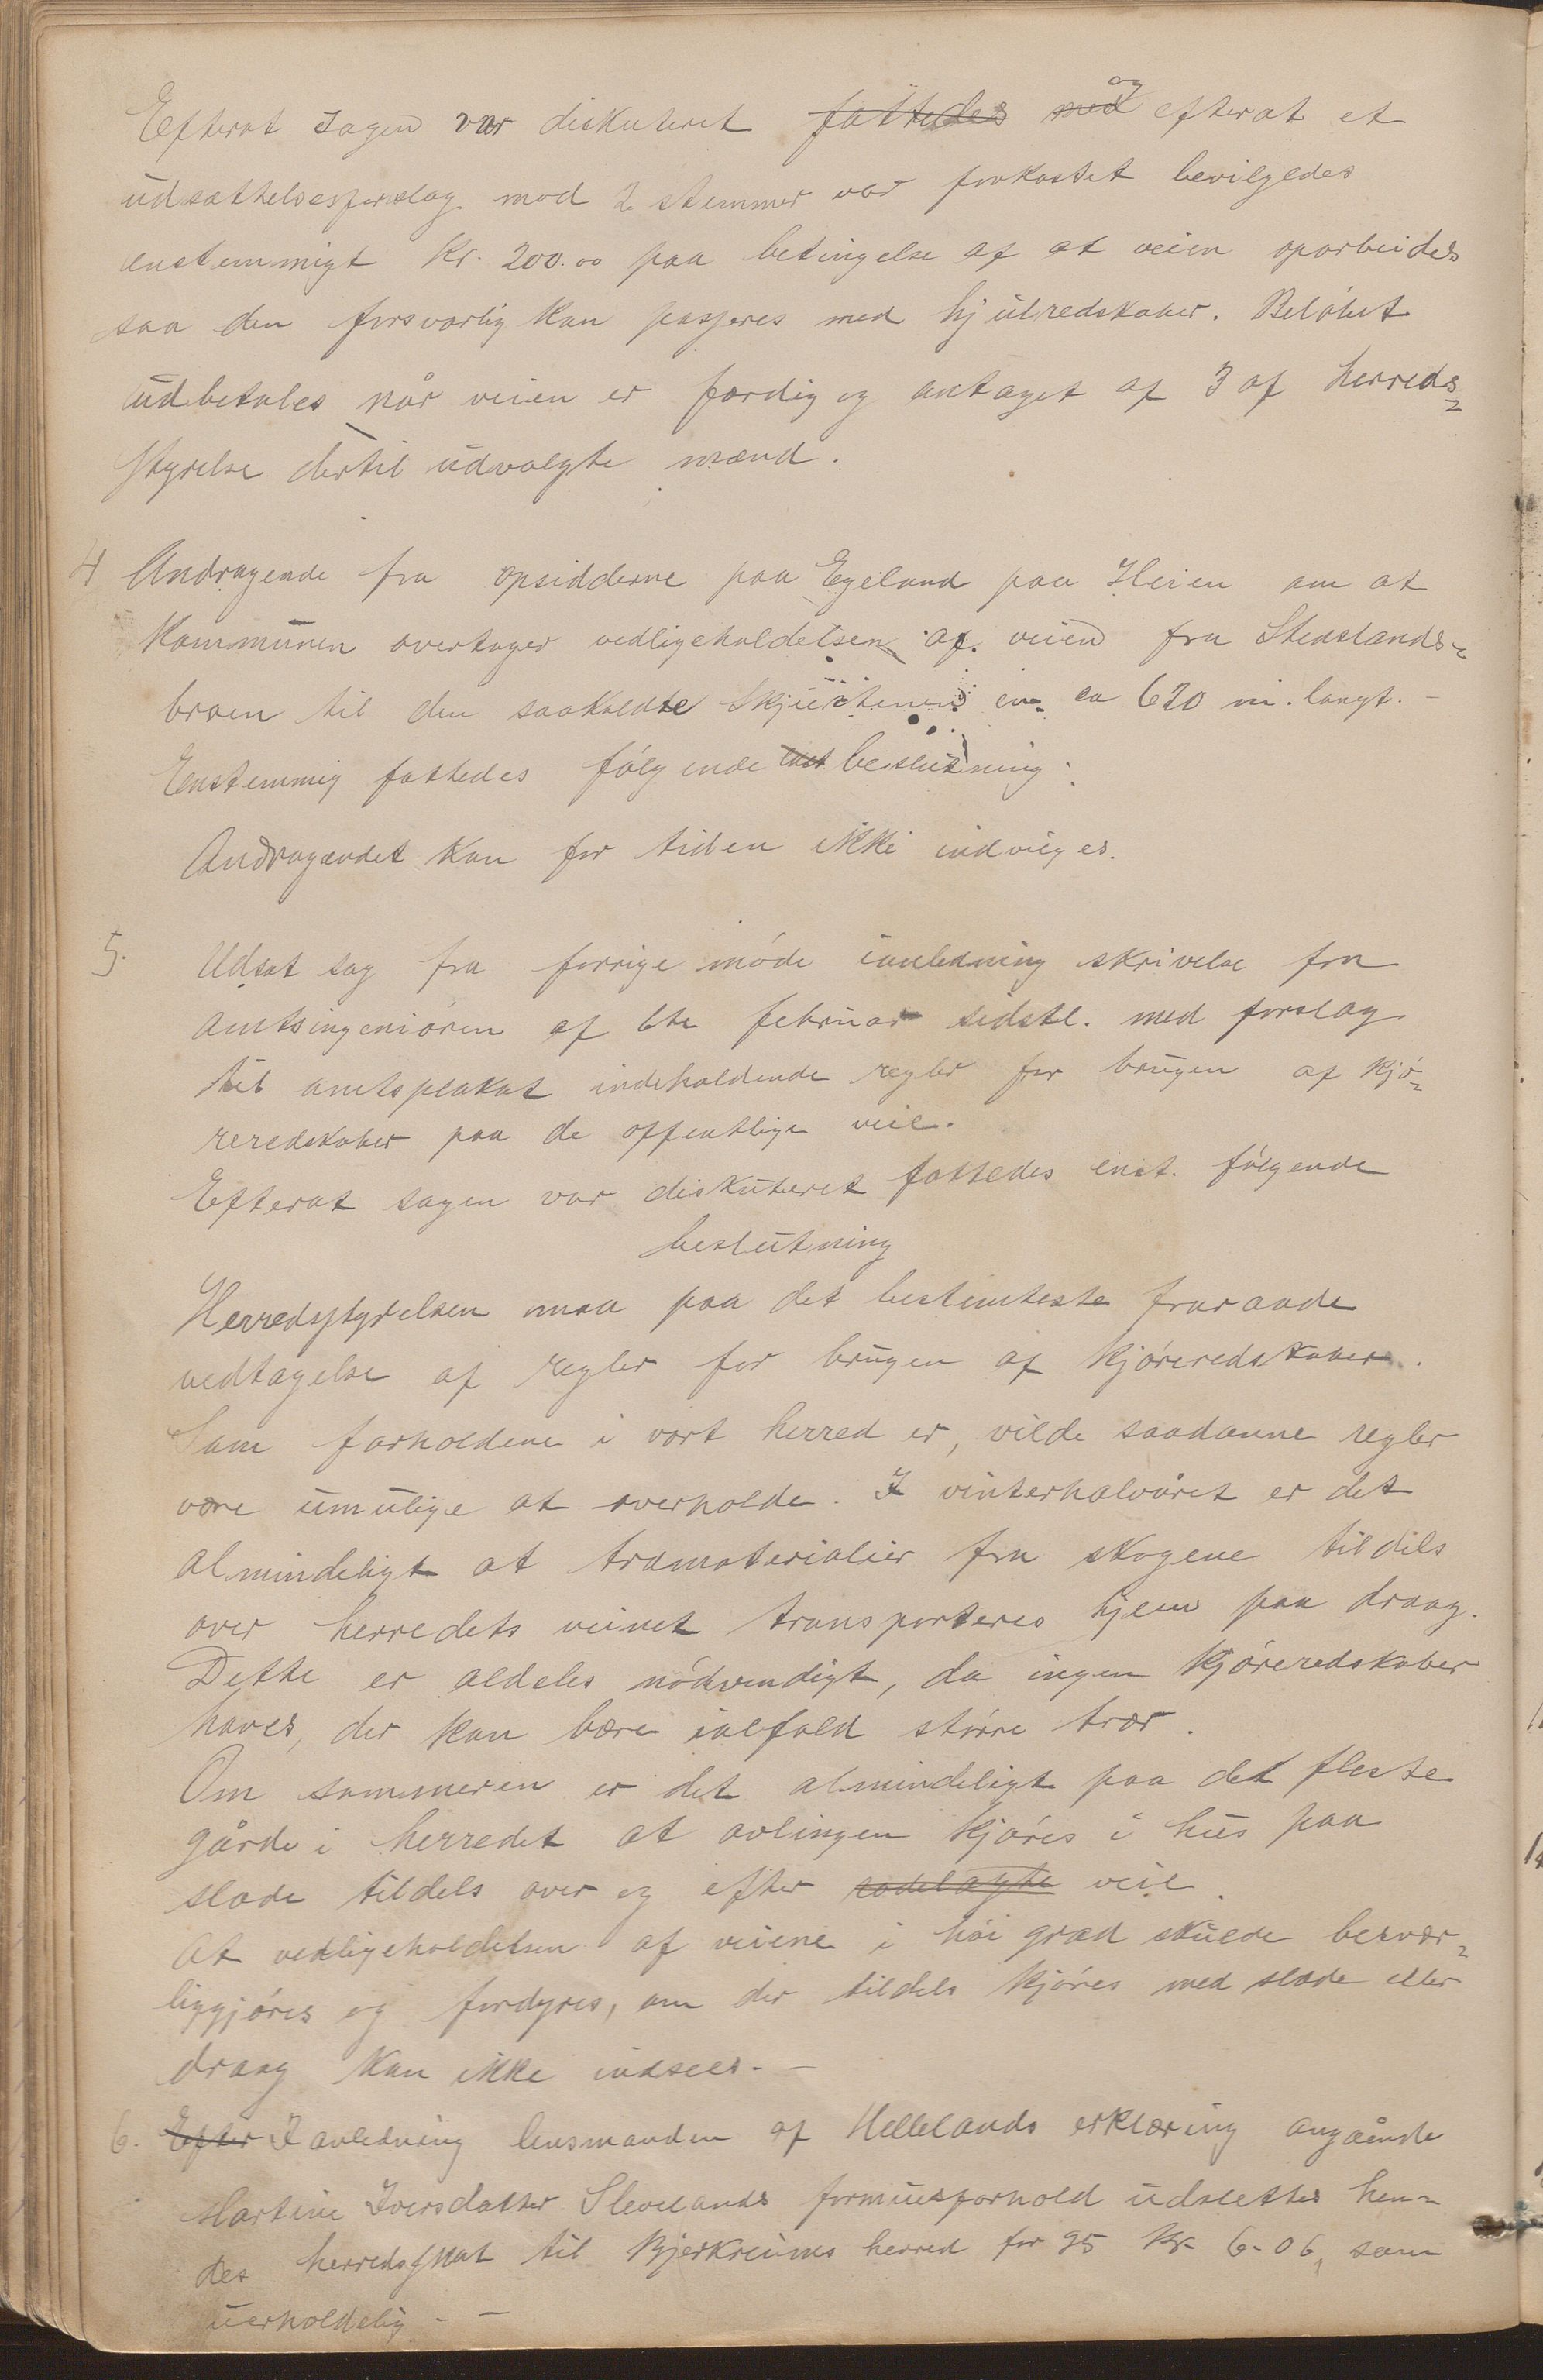 Efterat sagen var diskuteret fattedes med og efterat et
udsættelsesforslag mod 2 stemmer var forkastet bevilgedes
enstemmigt kr. 200.00 paa betingelse af at veien oparbeides
saa den forsvarlig kan passeres med hjulredskaber. Beløbet
udbetales når veien er færdig og antaget af 3 af herreds-
styrelse dertil udvalgte mænd.
4 Andragende fra opsidderne paa Egeland paa Heien om at
kommunen overtager vedligeholdelsen af veien fra Stedslands-
broen til den saakaldte en ca 620 m. langt. -
Enstemmig fattedes følgende beslutning:
Andragendet kan for tiden ikke indvilges.
5. Udsat sag fra forrige møde i anledning skrivelse fra
amtsingeniøren af 6te februar sidstl. med forslag
til amtsplakat indeholdende regler for brugen af kjø-
reredskaber paa de offentlige veie.
Efterat sagen var diskuteret fattedes enst. følgende
beslutning
Herredsstyrelsen maa paa det bestemteste fraraade
vedtagelse af regler for brugen af kjøreredskaber.
Som forholdene i vort herred er, vilde saadanne regler
være umulige at overholde. I vinterhalvåret er det
almindeligt at træmaterialier fra skogene tildels
over herredets veinet transporteres hjem paa draag.
Dette er aldeles nødvendigt, da ingen kjøreredskaber
haves, der kan bære ialfald større trær.
Om sommeren er det almindeligt paa det fleste
gårde i herredet at avlingen kjøres i hus paa
slæde tildels over og efter rodelagte veie.
At vedligeholdelsen af veiene i høi grad skulde besvær-
liggjøres og fordyres, om der tildels kjøres med slæde eller
draag kan ikke indsees. -
6. Efter I anledning lensmanden af Hellelands erklæring angående
Martine Iversdatter Slevelands formuesforhold udslettes hen-
des herredsskat til Bjerkreims herred for 95 kr 6-06, som
uerholdelig - -